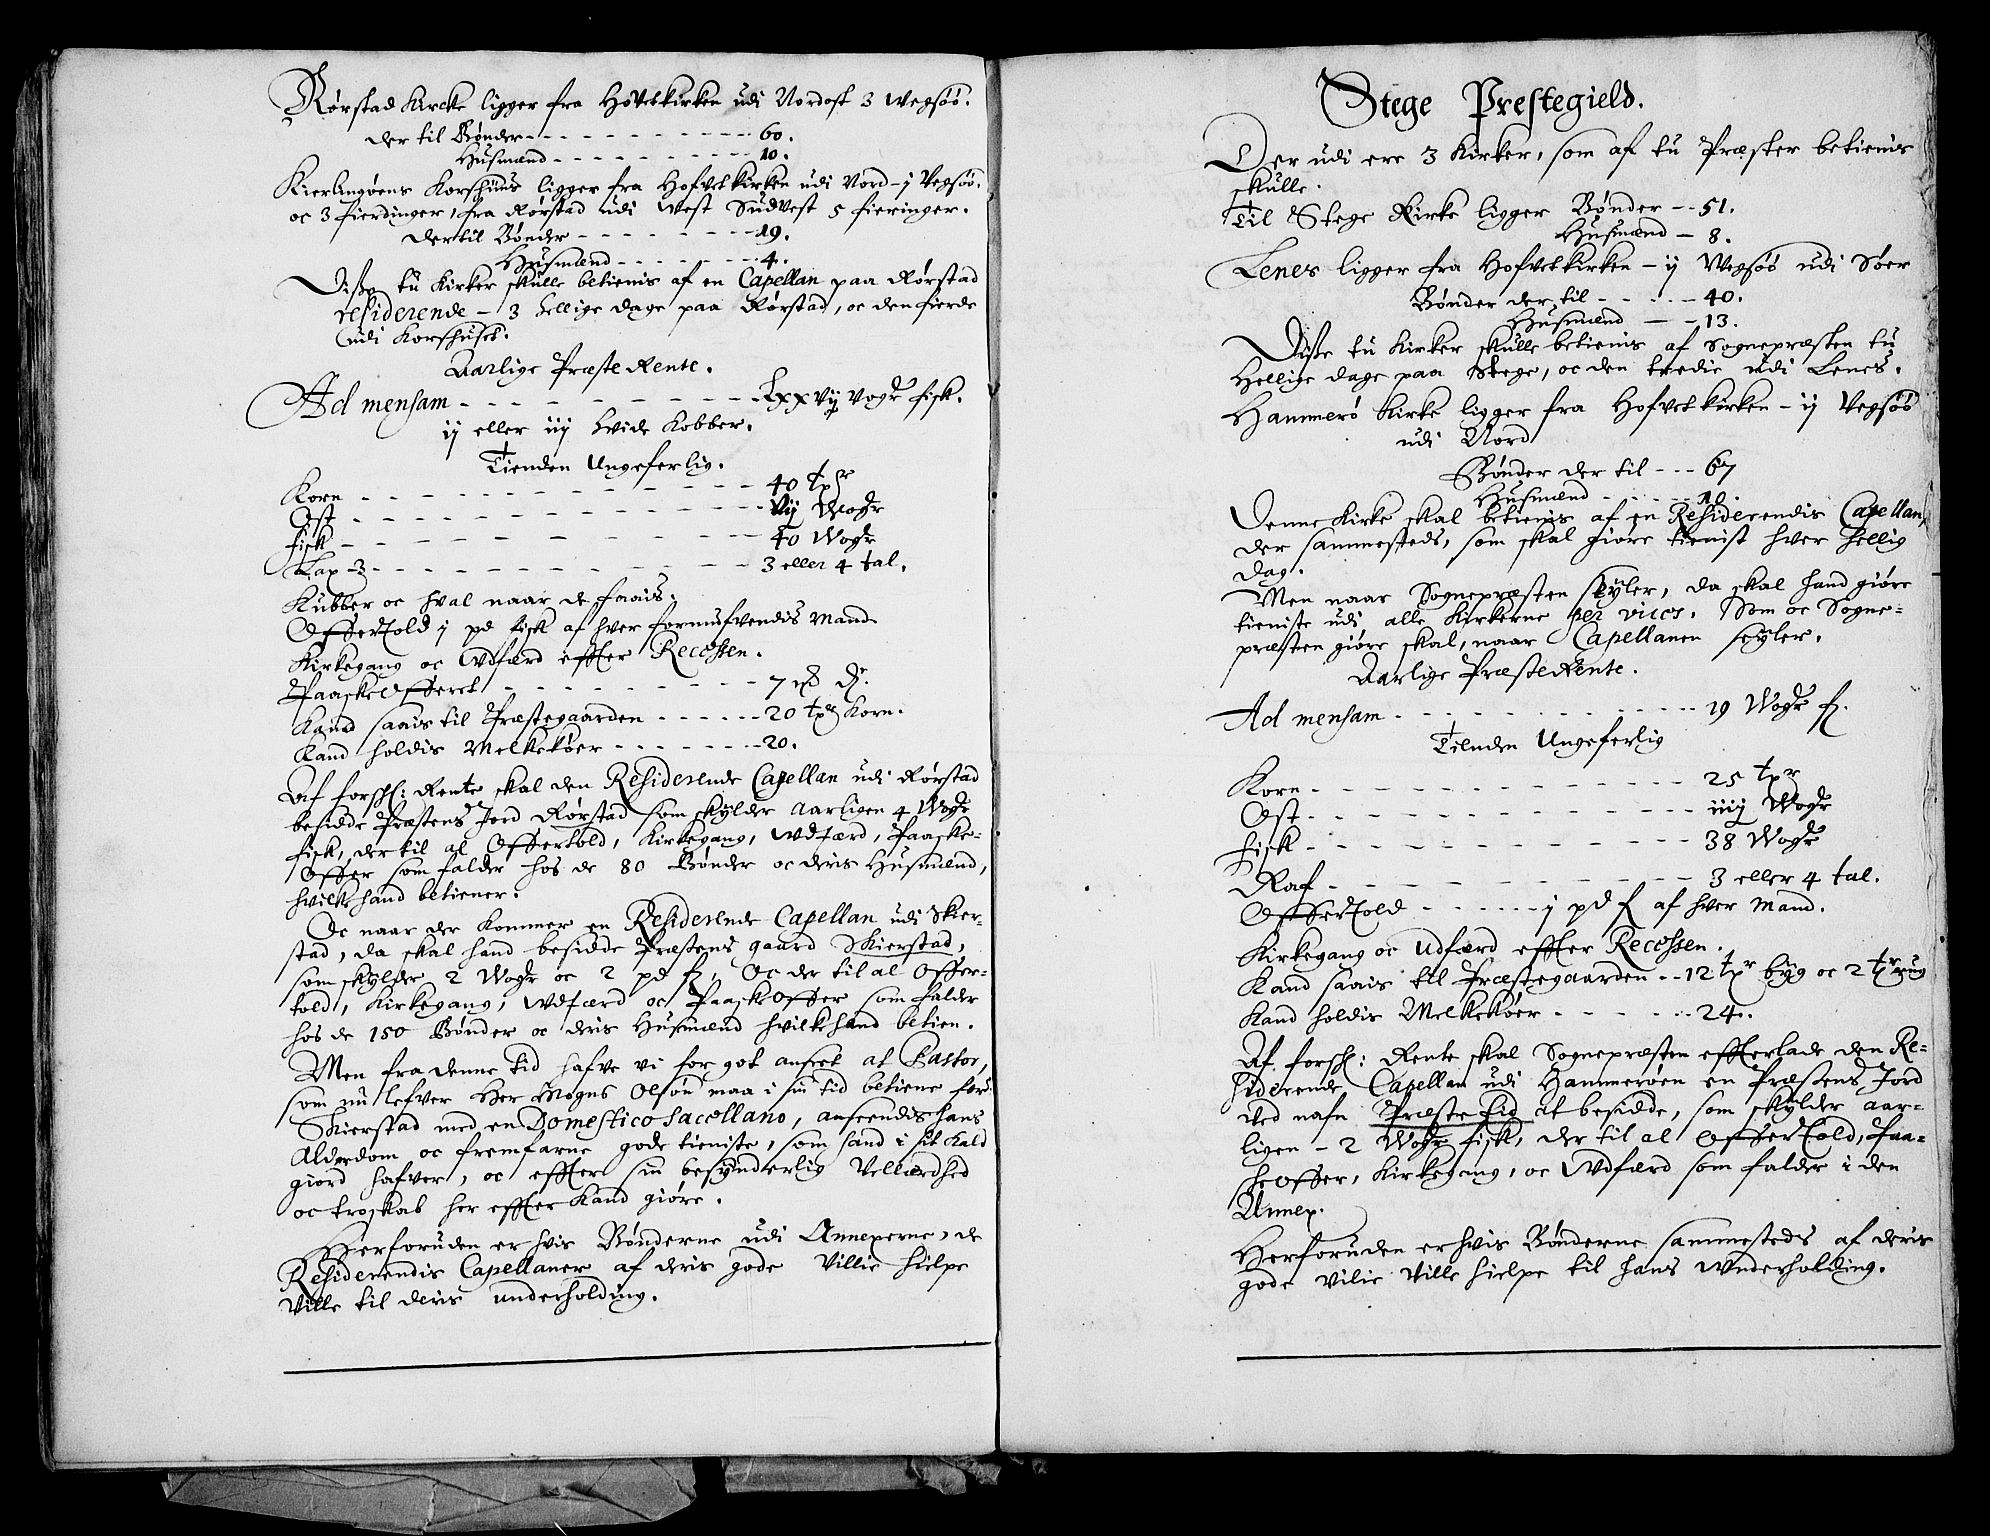 Rørstad Kircke ligger fra Hovetkirken udi Nordost 3 wegsöö.
der til Bønder - - - 60.
Husmænd - - - 10.
Kierlingøens Korshuus ligger fra Hofvetkirken udi Nord - j Vegsöö.
oc 3 fierdinger, fra Rørstad udi West Sudvest 5 fieringer.
dertil Bønder - - - 19.
Husmænd - - - 4.
Disse tu Kirker skulle betienis af en Capellan paa Rørstad
residerende - 3 hellige dage paa Rørstad, oc den fierde
udi Korshuset.
Aarlige Præste Rente.
Ad mensam - - - Lxxvij vogr fisk.
ij eller iij hvide Kobber.
Tienden Ungeferlig.
Korn - - - 40 tpr
Ost - - - vij Wogr
fisk - - - 40 Wogr
Lax - - - 3 eller 4 tal.
Kubber oc hval naar de faais.
Offertold j pd fisk af hver formufvendis Mand
Kirkegang oc Udfærd effter Recessen.
Paaske Offeret - - - 7 dr.
Kand saais til Præstegaarden - - - 20 tpr Korn.
Kand holdis Melkekøer - - - 20.
Af forsch: Rente skal den Residerende Capellan udi Rørstad
besidde Præstens Jord Rørstad som skylder aarligen 4 Wogr
fisk, der til al Offertold, Kirkegang, Udfærd, Paaske-
Offer som falder hos de 80 Bønder oc deris Husmænd,
hvilke hand betiener.
Oc naar der kommer en Residerende Capellan udi Skier-
stad, da skal hand besidde Præstens gaard Skierstad,
som skylder 2 Wogr oc 2 pd f, Oc der til al Offer-
told, Kirkegang, Udfærd oc Paaske Offer som falder
hos de 150 Bønder oc deris Husmænd hvilke hand betien.
Men fra denne tid hafve vi for got anseet at Pastor,
som nu lefver Her Mogns Olsøn maa i sin tid betiene for
Skierstad med en Domestico Sacellano, anseendis hans
Alderdom oc fremfarne gode tieniste, som hand i sit Kald
giord hafver, oc effter sin besynderlig Vellærdhed
oc troskab her effter Kand giøre.
Herforuden er hvis Bønderne udi Annexerne, de
Residerendis Capellaner af deris gode Villie hielpe
Ville til deris underholding.
Stege Prestegield.
Der udi ere 3 Kirker, som af tu Præster betienis
skulle.
Til Stege Kirke ligger Bønder - - 51.
Husmænd - 8.
Lenes ligger fra Hofvetkirken - ij Wegsöö udi Søer
Bønder der til - - - 40.
Husmænd - - 13.
Disse tu Kirker skulle betienis af Sognepræsten tu
Hellige dage paa Stege, oc den tredie udi Lenes.
Hammerö Kirke ligger fra Hofvetkirken - ij Vegsöö
udi Nord
Bønder der til - - - 67
Husmænd - - - 10.
Denne Kirke skal betienis af en Residerendis Capellan,
der sammesteds, som skal giøre tienist hver hellig
dag.
Men naar Sognepræsten seyler, da skal hand giøre
tieniste udi alle Kirkerne per vices. Som oc Sogne-
præsten giøre skal, naar Capellanen seyler.
Aarlige Præste Rente.
Ad mensam - - - 19 Wogr f.
Tienden Ungeferlig
Korn - - - 25 tpr
Ost - - - iiij Wogr
fisk - - - 38 Wogr
Raf - - - 3 eller 4 tal.
Offertold - - - j pd f af hver Mand.
Kirkegang oc Udfærd effter Recessen.
Kand saais til Præstegaarden - - 12 tpr byg oc 2 tpr rug
Kand holdis Melkekøer - - - 24.
Af forsch: Rente skal Sognepræsten effterlade den Re-
siderende Capellan udi Hammerøen en Præstens Jord
ved nafn Præste Eid at besidde, som skylder aar-
ligen - 2 Wogr fisk, der til al Offertold, Paa-
skeoffer, Kirkegang, oc Udfærd som falder i den
Annex.
Herforuden er hvis Bønderne sammesteds af deris
gode Vilie Ville hielpe til hans Underholding.